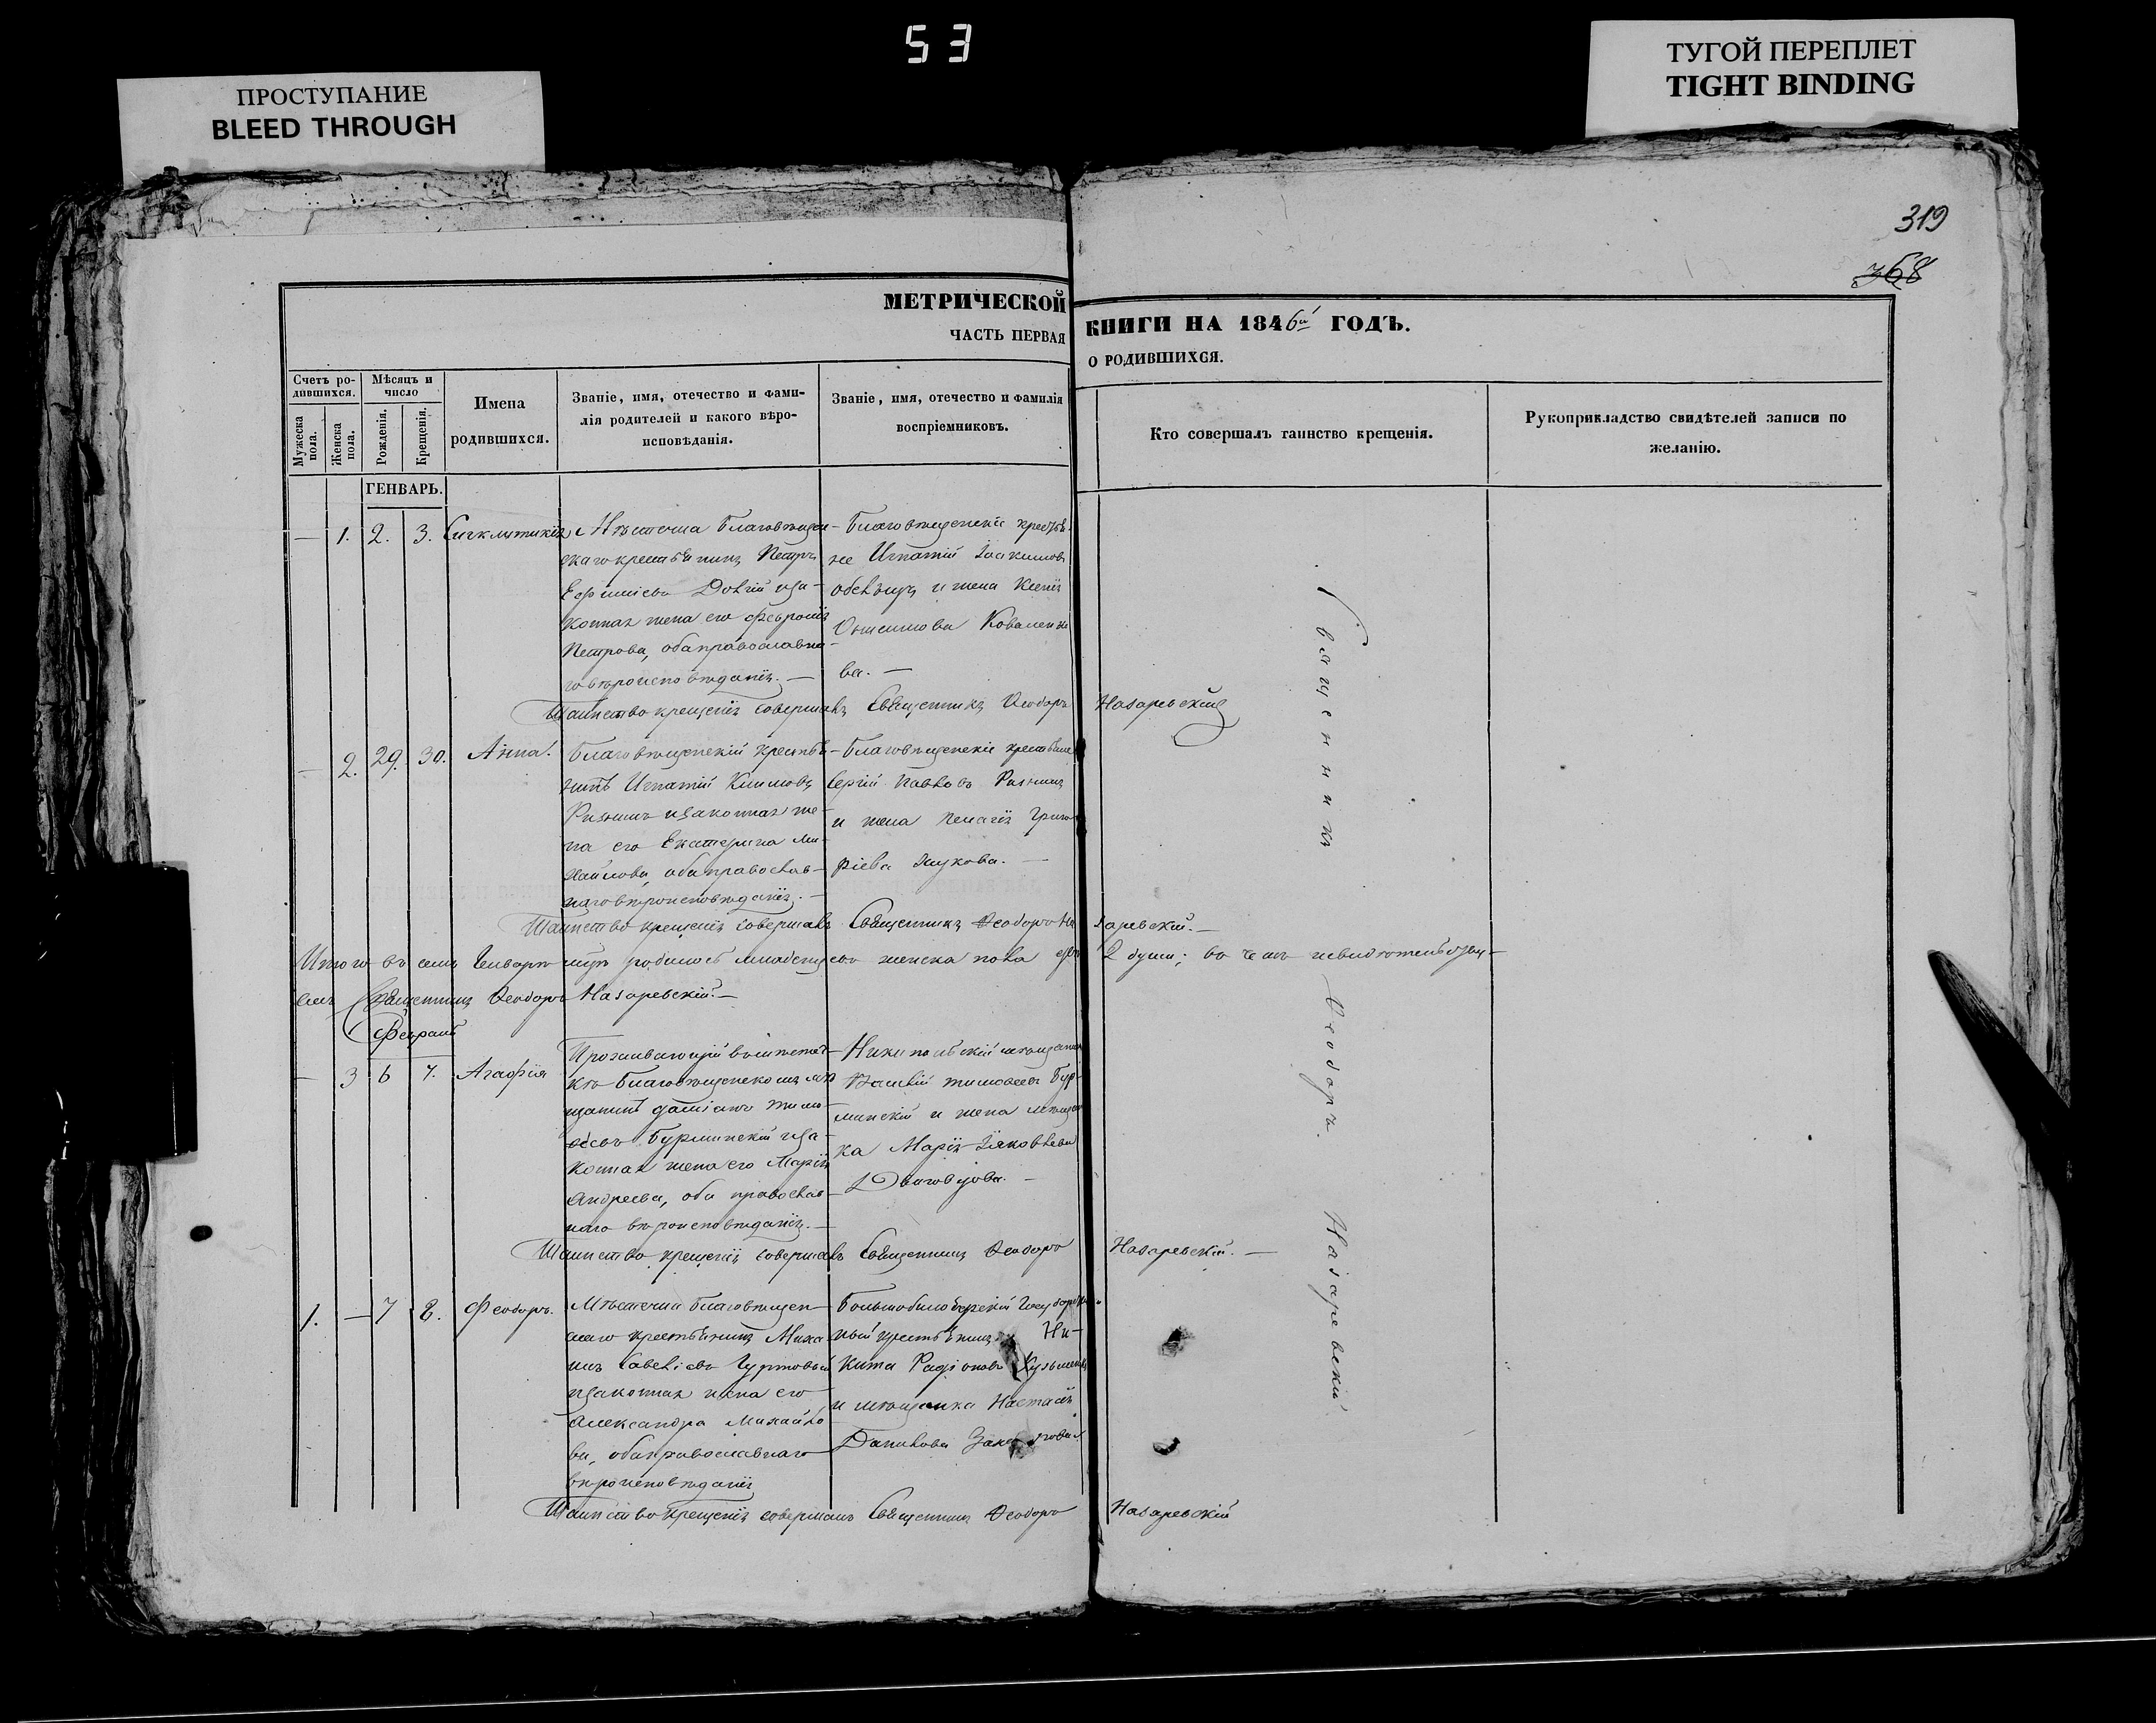 53
ПРОСТУПАНИЕ
BLEED THROUGH
ТУГОЙ ПЕРЕПЛЕТ
TIGHT BINDING
319
368
МЕТРИЧЕСКОЙ
ЧАСТЬ ПЕРВАЯ
КНИГИ НА 1846й ГОДЪ.
О РОДИВШИХСЯ.
Счетъ ро-
дившихся.
Мужеска пола.
Женска пола.
Мѣсяцъ и
число
Рожденія.
Крещенія.
Имена
родившихся.
Званіе, имя, отечество и фами-
лія родителей и какого вѣро-
исповѣданія.
Званіе, имя, отечество и фамилія
воспріемниковъ.
Кто совершалъ таинство крещенія.
Рукоприкладство свидѣтелей записи по
желанію.
ГЕНВАРЬ.
— 1. 2. 3. Сигклитикія
Мѣстечка Благовѣщен-
скаго крестьянинъ Петръ
Ефимiевъ Довгій и за-
конная жена его Февронія
Петрова, оба православна-
го вѣроисповѣданія. —
Благовѣщенскіе крестья-
не Игнатій Іоакимовъ
и жена Ксенія
Коваленко
ва. —
Таинство крещенія совершалъ Священникъ Ѳеодоръ Назаревскій
— 2. 29. 30. Анна.
Благовѣщенскій крестья-
нинъ Игнатій Климовъ
и законная же-
на его Екатерина Ми-
хайлова, оба православ-
наго вѣроисповѣданія. —
Благовѣщенскіе крестьяне
Сергій Павловъ
и жена Пелагія Григо
ріева Жукова. —
Таинство крещенія совершалъ Священникъ Ѳеодоръ Назаревскій. —
Итого въ семъ Генварѣ мцѣ родилось младенцевъ женска пола 2 души; въ чемъ
Священникъ Ѳеодоръ Назаревскій. —
Февраль
— 3 6 7. Агафія
Проживающій въ мѣстеч-
кѣ Благовѣщенскомъ мѣ
щанинъ Даміанъ Тимо-
ѳеевъ Бурминскій и за-
конная жена его Марія
Андреева, оба православ
наго вѣроисповѣданія. —
Никопольскій мѣщанинъ
Тимоѳеевъ Бур-
минскій и жена мѣщан
ка Марія Іяковлева
Таинство крещенія совершалъ Священникъ Ѳеодоръ Назаревскій. —
1. — 7 8. Феодоръ.
Мѣстечка Благовѣщен
скаго крестьянинъ Миха
илъ Савеліевъ Чуртовый
и законная жена его
Александра Михайло
ва, оба православнаго
вѣроисповѣданія
Государствен
ный крестьянинъ Ни-
кита Радіоновъ
и мѣщанка Настасія
Данилова
Таинство крещенія совершалъ Священникъ Ѳеодоръ Назаревскій
Священникъ Ѳеодоръ. Назаревскій